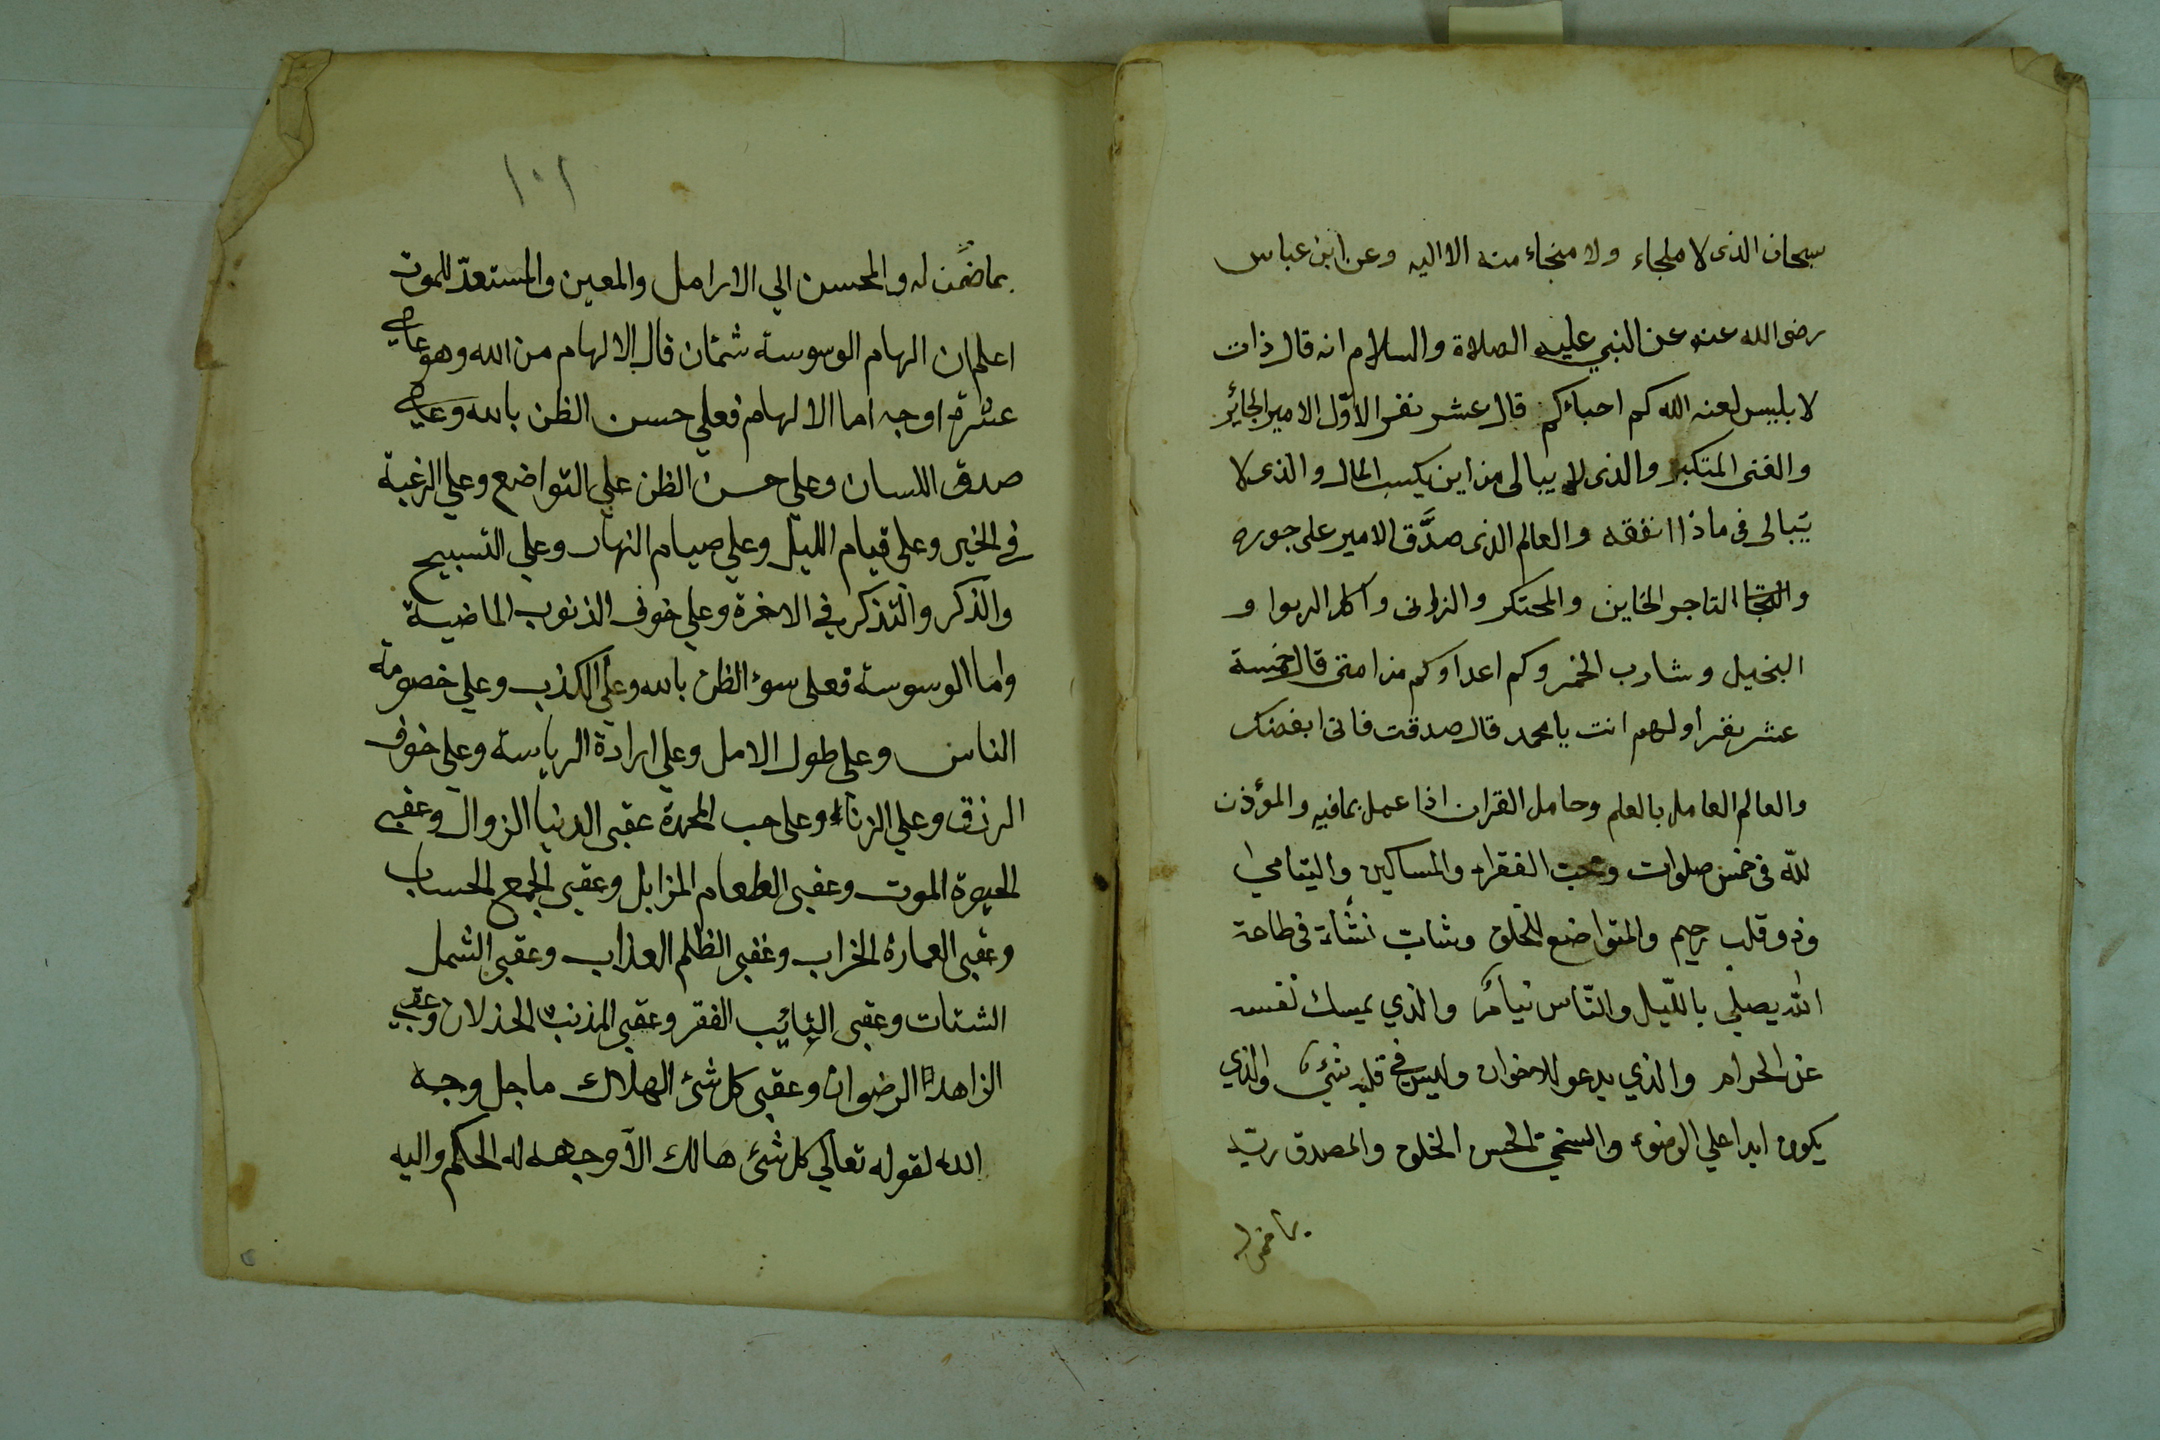 سبحان الذى لا ملجاء ولا منجاء منه الا اليه وعن ابن عباس
رضى الله عنه عن النبي عليه الصلاة والسلام انه قال ذات
لابليس لعنه الله كم احباءكم قال عشر نفر الاوّل الامير الجائر
والغنى المتكبر والذى لا يبالى من اين يكسب المال والذى لا
يبالى فى ماذا انفقه والعالم الذى صدَّق الامير على جوره
والتاجر الخاين والمحتكر والزانى وآكل الربوا و
البخيل وشارب الخمر وكم اعداوكم من امتى قال خمسة
عشر نفر أولهم انت يا محمد قال صدقت فانى ابغضك
والعالم العامل بالعلم وحامل القران اذا عمل بما فيه والمؤذن
للّه فى خمس صلوات ومحب الفقراء والمساكين واليتامي
وذو قلب رحيم والمتواضع للخلق وشابّ نشأ فى طاعة
الله يصلى بالليل والناس نيام والذي يمسك نفسه
عن الحرام والذي يدعو للاخوان وليس في قلبه شئ والذي
يكون ابدا علي الوضوء والسخيّ الحسن الخلق والمصدق ربّه
بما ضمن له
١٠١
بما ضمن له والمحسن الي الارامل والمعين والمستعدّ للموت
اعلم ان الهام الوسوسة شئان قال الالهام من الله وهو على
عشرة اوجه اما الالهام فعلي حسن الظن بالله وعلي
صدق اللسان وعلي حسن الظن علي التواضع وعلي الرغبة
في الخير وعلي قيام الليل وعلي صيام النهار وعلي التسبيح
والذكر والتذكر في الاخرة وعلي خوف الذنوب الماضية
واما الوسوسة فعلي سوء الظن بالله وعلي الكذب وعلي خصومة
الناس وعلي طول الامل وعلي ارادة الرياسة وعلي خوف
الرزق وعلي الزناء وعلي حب المحمدة عقبى الدنيا الزوال وعقبى
الحيوة الموت وعقبى الطعام المزابل وعقبى الجمع الحساب
وعقبى العمارة الخراب وعقبى الظلم العذاب وعقبى الشمل
الشتات وعقبى التائب الفقر وعقبى المذنب الخذلان وعقبى
الزاهد الرضوان وعقبى كل شئ الهلاك ما جل وجه
الله لقوله تعالي كل شئ هالك الاّ وجهه له الحكم واليه